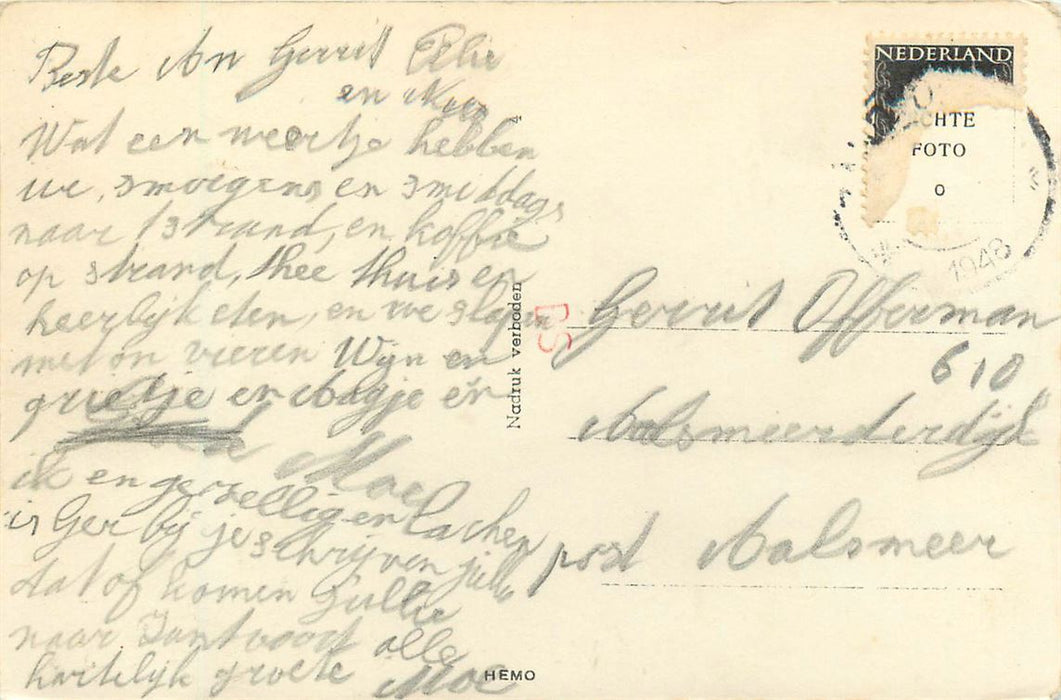 Beste An Gerrit Ellie
en Koos
Wat een weertje hebben
we, smorgens en smiddags
naar 't strand, en koffie
op strand, thee thuis en
heerlijk eten, en we slapen
met on vieren Wijn en
grietje en Aagje én
Moe
ik en gezellig en lachen
is Ger bij je schrijven jullie
dat of komen Jullie
naar Zantvoort alle
hartelijk groete Moe
Nadruk verboden
4
HEMO
NEDERLAND
CHTE
FOTO
o
1948
DS
Gerrit Offerman
610
Aalsmeerderdijk
post Aalsmeer